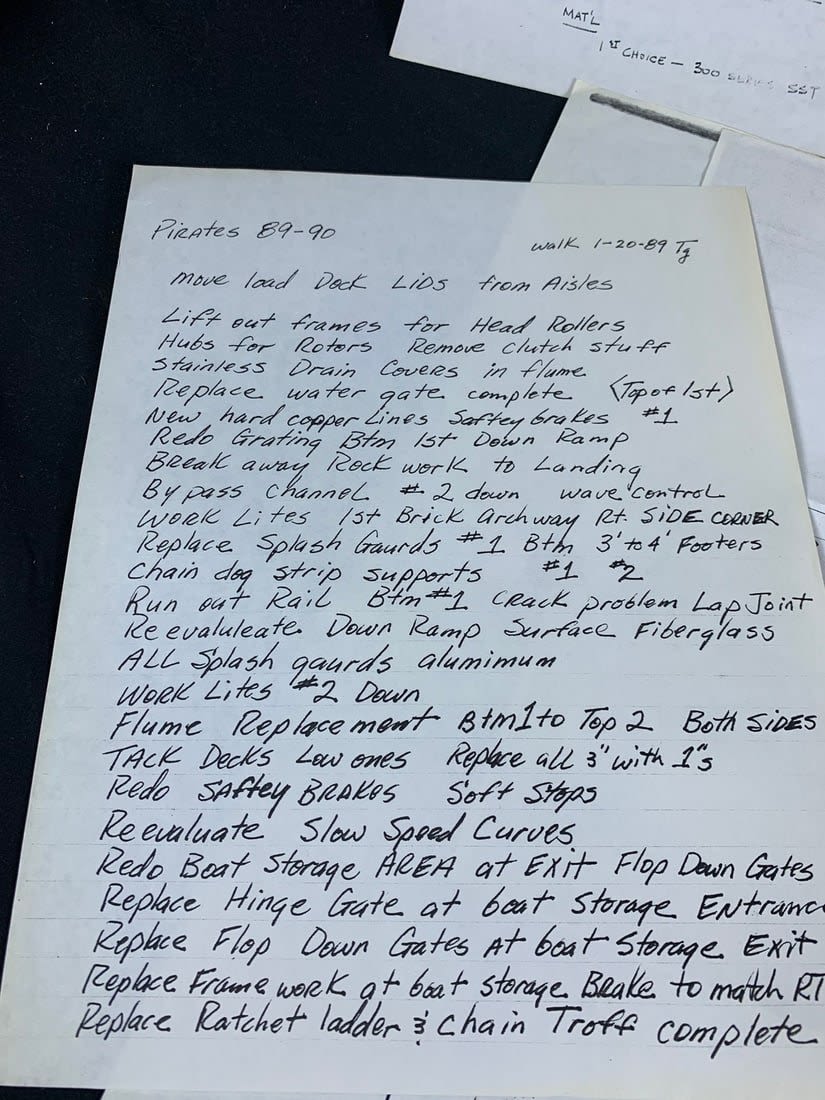 MAT'L
1ST CHOICE — 300 SERIES SST
Pirates 89-90
walk 1-20-89 Tg
move load Dock Lids from Aisles
Lift out frames for Head Rollers
Hubs for Rotors Remove clutch stuff
Stainless Drain Covers in flume
Replace water gate complete <Top of 1st>
New hard copper Lines Saftey brakes #1
Redo Grating Btm 1st Down Ramp
Break away Rock work to Landing
By pass channel #2 down wave control
Work Lites 1st Brick Archway Rt. SIDE CORNER
Replace Splash Gaurds #1 Btm 3' to 4' Footers
Chain dog strip supports #1 #2
Run out Rail Btm #1 crack problem Lap Joint
Re evaluleate Down Ramp Surface Fiberglass
ALL Splash gaurds alumimum
Work Lites #2 Down
Flume Replacement Btm 1 to Top 2 Both SIDES
TACK Decks Low ones Replace all 3" with 1"s
Redo SAftey BRAKes Soft Stops
Reevaluate Slow Speed Curves
Redo Boat Storage AREA at Exit Flop Down Gates
Replace Hinge Gate at boat Storage Entranc
Replace Flop Down Gates At boat Storage Exit
Replace Frame work at boat storage Brake to match RT
Replace Ratchet ladder & Chain Troff complete